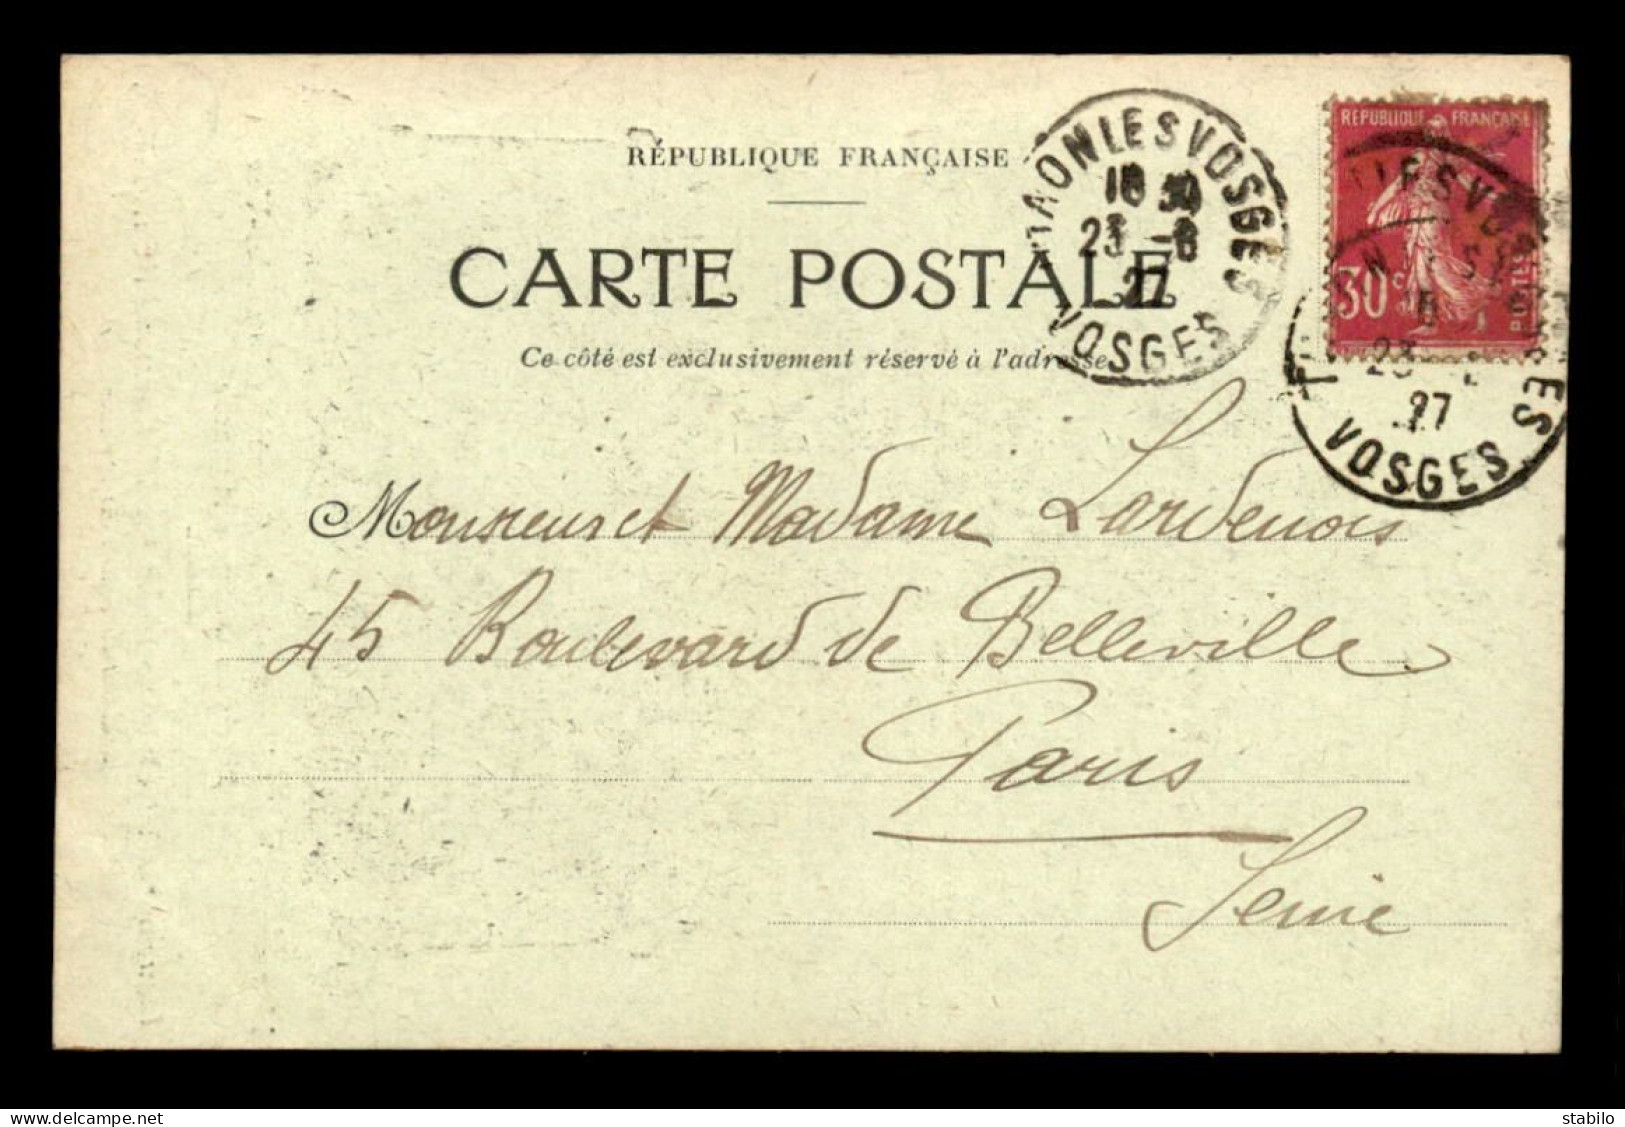 RÉPUBLIQUE FRANÇAISE
CARTE POSTALE
Ce côté est exclusivement réservé à l'adresse
THAON LES VOSGES
18 30
23 -8
27
VOSGES
REPUBLIQUE FRANÇAISE
30c
POSTES
VOSGES
23
27
VOSGES
Monsieur et Madame Lardenois
45 Boulevard de Belleville
Paris
Seine
stabylo
delcampe.net